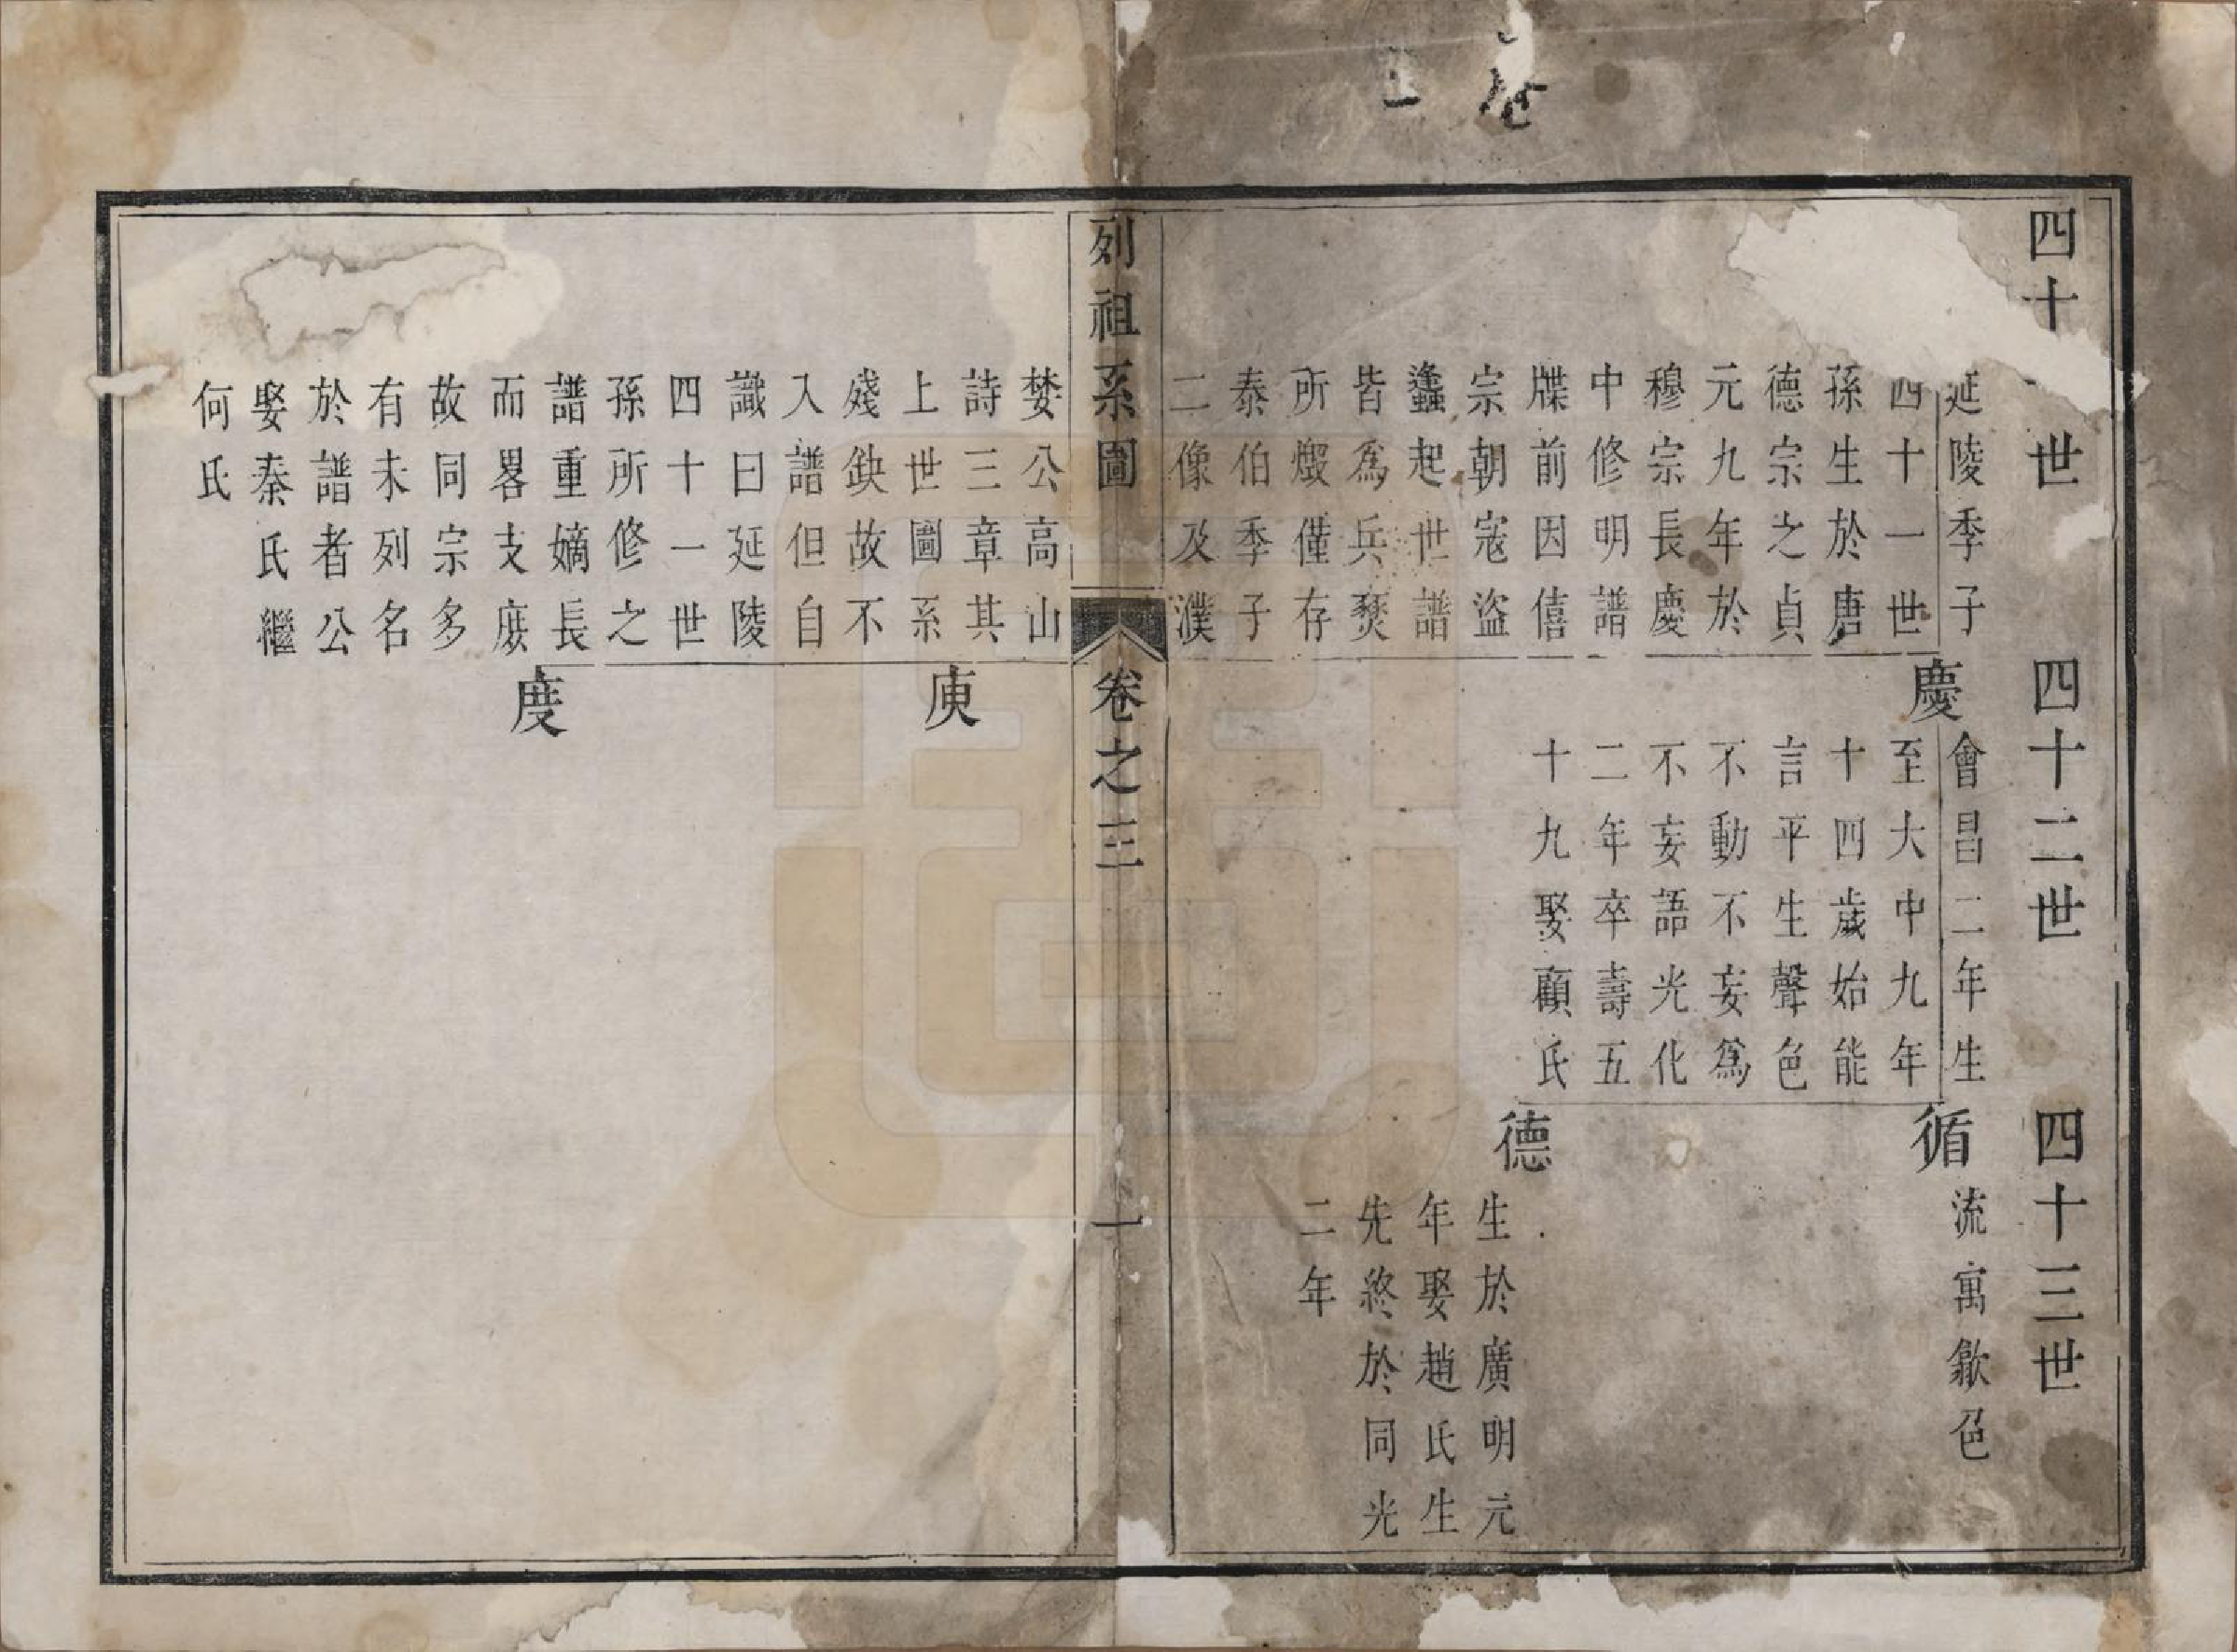 四十 世
四十二世
四十三世
延陵季子
四十一世
孫生於唐
德宗之貞
元九年於
穆宗長慶
中修明譜
牒前因僖
宗朝寇盜
蠭起世譜
皆為兵燹
所燬僅存
泰伯季子
二像及濮
慶
會昌二年生
至大中九年
十四歲始能
言平生聲色
不動不妄爲
不妄語光化
二年卒壽五
十九娶顧氏
循
流寓歙邑
德
生於廣明元
年娶趙氏生
先終於同光
二年
列祖系圖
卷之三
一
婪公高山
詩三章其
上世圖系
殘鈌故不
入譜但自
識曰延陵
四十一世
孫所修之
譜重嫡長
而畧支庶
故同宗多
有未列名
於譜者公
娶秦氏繼
何氏
庾
度